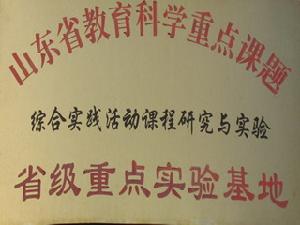 山东省教育科学重点课题
综合实践活动课程研究与实验
省级重点实验基地